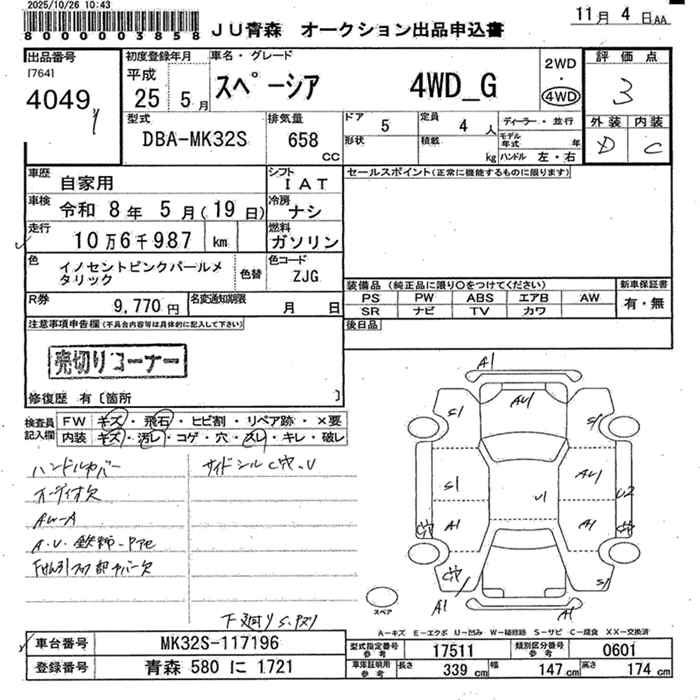 2025/10/26 10:43
8000003858
JU青森 オークション出品申込書
11月 4日AA
出品番号
[764]
4049
初度登録年月
平成
25 5月
車名・グレード
スペーシア 4WD_G
2WD
・
4WD
評価点
3
外装 内装
D C
型式
DBA-MK32S
排気量
658
CC
ドア
5
形状
定員
4人
積載
kg
ディーラー・並行
モデル年式 年
ハンドル 左・右
車歴
自家用
シフト
IAT
車検
令和 8年 5月(19日)
冷房
ナシ
走行
10万6千987 km
燃料
ガソリン
色
イノセントピンクパールメ
タリック
色替
色コード
ZJG
R券
9,770円
名変通知期限
月 日
セールスポイント(正常に機能するものに限ります)
装備品 (純正品に限り○をつけてください)
PS PW ABS エアB AW
SR ナビ TV カワ
新車保証書
有・無
後日品
注意事項申告欄(不具合内容等は具体的に記入して下さい)
売切りコーナー
修復歴 有〔箇所 〕
検査員
記入欄
FW キズ・飛石・ヒビ割・リペア跡・×要
内装 キズ・汚レ・コゲ・穴・スレ・キレ・破レ
ハンドルカバー
サイドシル C穴.U
オーディオ欠
AW-A
下廻りS.
A1
S1
AU
S1
AU
U1
U2
A1
A1
C穴
C穴
A1
A1
S1
スペア
A-キズ E-エクボ U-凹み W-補修跡 S-サビ C-腐食 XX-交換済
車台番号
MK32S-117196
登録番号
青森 580 に 1721
型式指定番号
参考
17511
類別区分番号
参考
0601
車庫証明用
参考
長さ
339 cm
幅
147 cm
高さ
174 cm